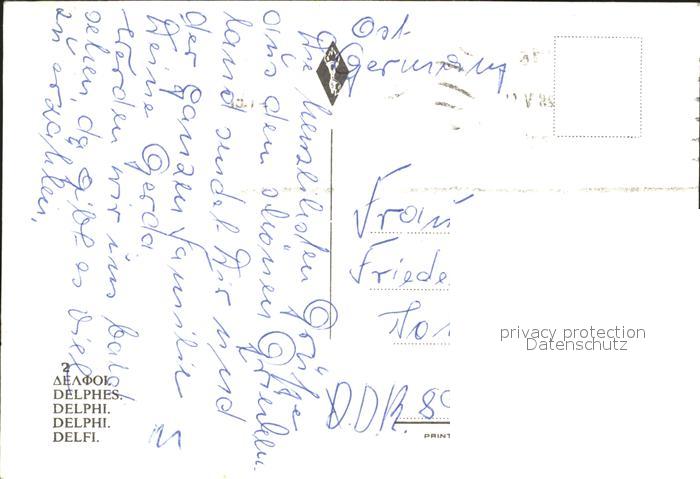 Die herzlichsten Grüße
aus dem schönen Griechen-
land sendet Dir und
der ganzen Familie
Deine Gerda
Werden wir uns bald
sehen, da gibt es viel
zu erzählen.
Ost
Germany
Frau
Friede
D.D.R. 80
2
ΔΕΛΦΟΙ.
DELPHES.
DELPHI.
DELPHI.
DELFI.
PRINT
privacy protection
Datenschutz